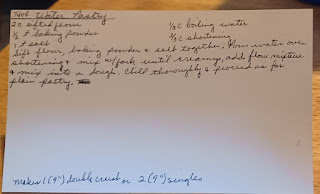 Hot Water Pastry
2 c sifted flour 1/4 c boiling water
1/2 t baking powder 2/3 c shortening
1 t salt
Sift flour, baking powder & salt together. Pour water over
shortening & mix w/fork until creamy, add flour mixture
& mix into a dough. Chill thoroughly & proceed as for
plain pastry.
Makes 1 (9") double crust or 2 (9") singles